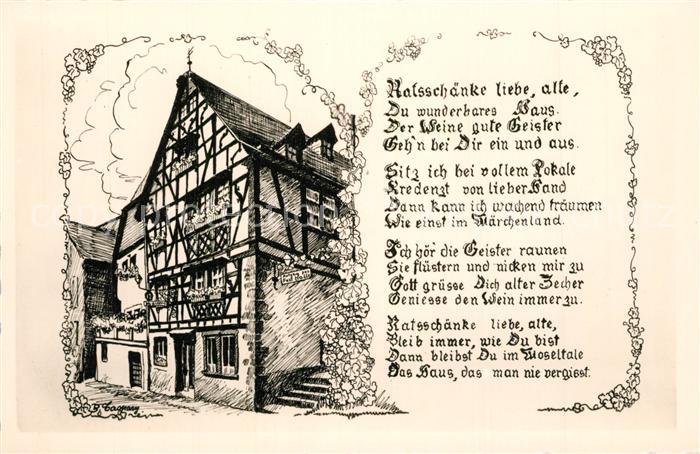 Ratsschänke liebe, alte,
Du wunderbares Haus.
Der Weine gute Geister
Geh'n bei Dir ein und aus.
Sitz ich bei vollem Pokale
Kredenzt von lieber Hand
Dann kann ich wachend träumen
Wie einst im Märchenland.
Ich hör' die Geister raunen
Sie flüstern und nicken mir zu
Gott grüsse Dich alter Zecher
Geniesse den Wein immer zu.
Ratsschänke liebe, alte,
Bleib immer, wie Du bist
Dann bleibst Du im Moseltale
Das Haus, das man nie vergisst.